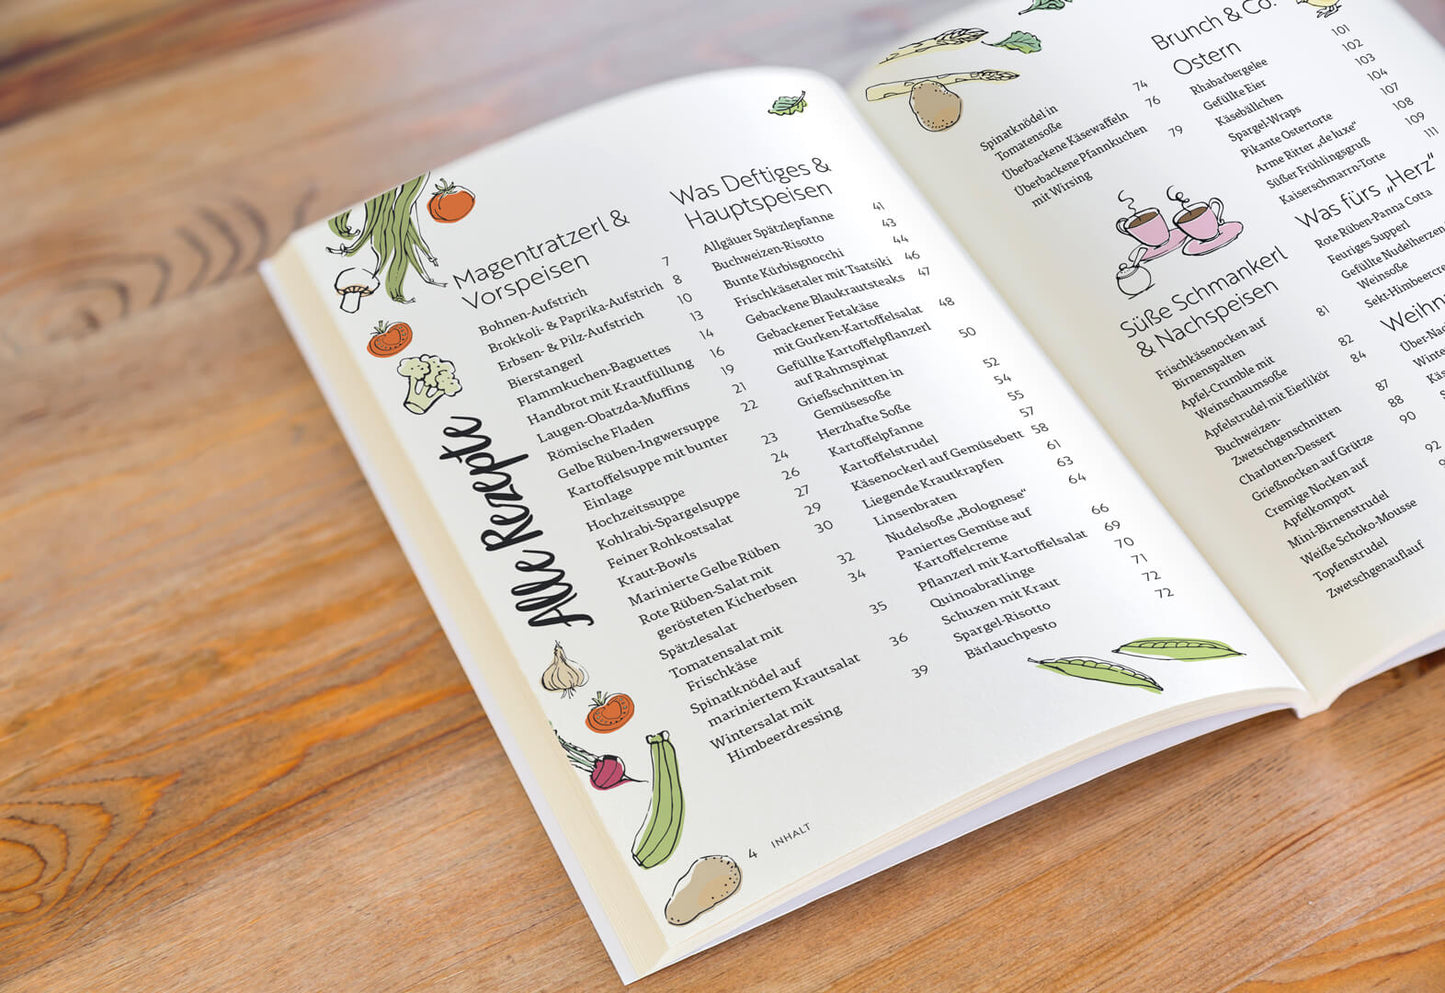 Alle Rezepte
Magentratzerl &
Vorspeisen
Bohnen-Aufstrich 7
Brokkoli- & Paprika-Aufstrich 8
Erbsen- & Pilz-Aufstrich 10
Bierstangerl 13
Flammkuchen-Baguettes 14
Handbrot mit Krautfüllung 16
Laugen-Obatzda-Muffins 19
Römische Fladen 21
Gelbe Rüben-Ingwersuppe 22
Kartoffelsuppe mit bunter
Einlage 23
Hochzeitssuppe 24
Kohlrabi-Spargelsuppe 26
Feiner Rohkostsalat 27
Kraut-Bowls 29
Marinierte Gelbe Rüben 30
Rote Rüben-Salat mit
gerösteten Kicherbsen 32
Spätzlesalat 34
Tomatensalat mit
Frischkäse 35
Spinatknödel auf
mariniertem Krautsalat 36
Wintersalat mit
Himbeerdressing 39
Was Deftiges &
Hauptspeisen
Allgäuer Spätzlepfanne 41
Buchweizen-Risotto 43
Bunte Kürbisgnocchi 44
Frischkäsetaler mit Tsatsiki 46
Gebackene Blaukrautsteaks 47
Gebackener Fetakäse
mit Gurken-Kartoffelsalat 48
Gefüllte Kartoffelpflanzerl
auf Rahmspinat 50
Grießschnitten in
Gemüsesoße 52
Herzhafte Soße 54
Kartoffelpfanne 55
Kartoffelstrudel 57
Käsenockerl auf Gemüsebett 58
Liegende Krautkrapfen 61
Linsenbraten 63
Nudelsoße „Bolognese“ 64
Paniertes Gemüse auf
Kartoffelcreme 66
Pflanzerl mit Kartoffelsalat 69
Quinoabratlinge 70
Schuxen mit Kraut 71
Spargel-Risotto 72
Bärlauchpesto 72
4 INHALT
Spinatknödel in
Tomatensoße 74
Überbackene Käsewaffeln 76
Überbackene Pfannkuchen
mit Wirsing 79
Süße Schmankerl
& Nachspeisen
Frischkäsenocken auf
Birnenspalten 81
Apfel-Crumble mit
Weinschaumsoße 82
Apfelstrudel mit Eierlikör 84
Buchweizen-
Zwetschgenschnitten 87
Charlotten-Dessert 88
Grießnocken auf Grütze 90
Cremige Nocken auf
Apfelkompott 92
Mini-Birnenstrudel
Weiße Schoko-Mousse
Topfenstrudel
Zwetschgenauflauf
Brunch & Co.
Ostern
Rhabarbergelee 101
Gefüllte Eier 102
Käsebällchen 103
Spargel-Wraps 104
Pikante Ostertorte 107
Arme Ritter „de luxe“ 108
Süßer Frühlingsgruß 109
Kaiserschmarrn-Torte 111
Was fürs „Herz“
Rote Rüben-Panna Cotta
Feuriges Supperl
Gefüllte Nudelherzen
Weinsoße
Sekt-Himbeercre
Weihn
Über-Nac
Winte